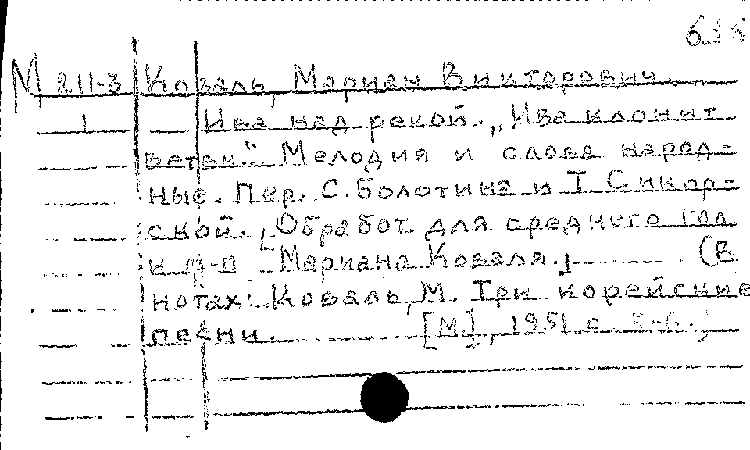 М 211-3 Коваль, Мариан Викторович.
1 Ива над рекой. „Ива клонит
ветви". Мелодия и слова народ-
ные. Пер. С. Болотина и Т. Сикор-
ской. [Обработ. для среднего гол.
и ф-п Мариана Коваля.] (В
нотах: Коваль, М. Три корейские
песни. [М.], 1951 с.